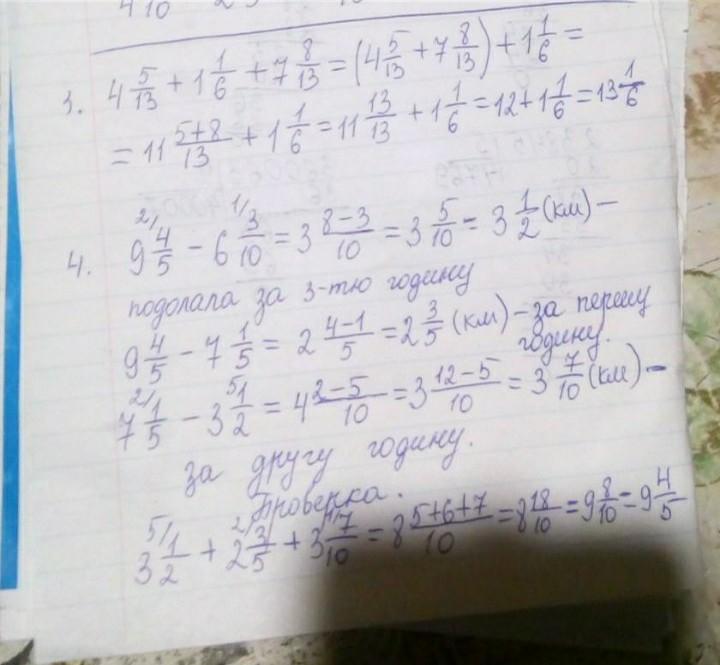 3. 4 5/13 + 1 1/6 + 7 8/13 = (4 5/13 + 7 8/13) + 1 1/6 =
= 11 5+8/13 + 1 1/6 = 11 13/13 + 1 1/6 = 12 + 1 1/6 = 13 1/6
4. 9 4/5 − 6 3/10 = 3 8−3/10 = 3 5/10 = 3 1/2 (км) −
подолала за 3-тю годину
9 4/5 − 7 1/5 = 2 4−1/5 = 2 3/5 (км) − за першу
годину.
7 1/5 − 3 1/2 = 4 2−5/10 = 3 12−5/10 = 3 7/10 (км) −
за другу годину.
Проверка.
3 1/2 + 2 3/5 + 3 7/10 = 8 5+6+7/10 = 8 18/10 = 9 8/10 = 9 4/5